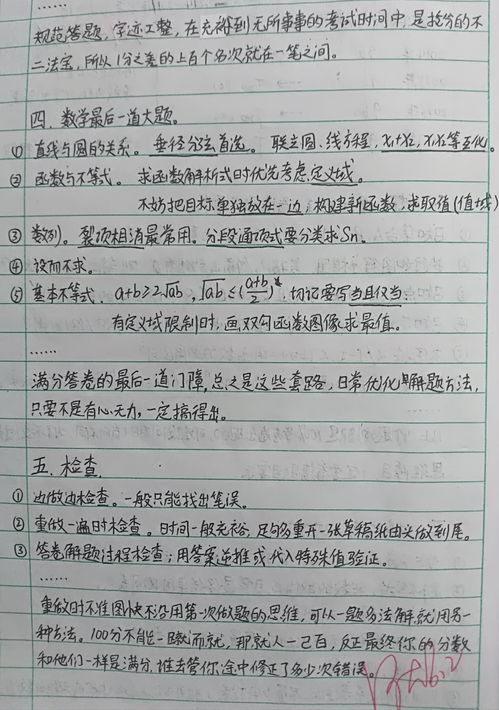 规范答题，字迹工整，在充裕到无所事事的考试时间中，是抢分的不
二法宝，所以1分之差的上百个名次就在一笔之间。
四．数学最后一道大题。
① 直线与圆的关系。垂径分注首选。联立圆、线方程，x₁+x₂，x₁x₂等互化。
② 函数与不等式。求函数解析式时优先考虑定义域。
不妨把目标单独放在一边，构建新函数，求取值(值域)
③ 数列。裂项相消最常用。分段通项式要分类求Sn。
④ 设而不求。
⑤ 基本不等式，a+b≥2√ab，√ab≤(a+b/2)，切记要写当且仅当。
有定义域限制时，画双勾函数图像求最值。
……
满分答卷的最后一道门障，总之是这些套路，日常优化解题方法，
只要不是有心无力，一定搞得出。
五．检查．
① 边做边检查。一般只能找出笔误。
② 重做一遍时检查。时间一般充裕，足够多重开一张草稿纸由头做到尾。
③ 答卷解题过程检查；用答案逆推或代入特殊值验证。
……
重做时不准图快不沿用第一次做题的思维，可以一题多法解就用另一
种方法。100分不能一蹴而就，那就人一己百，反正最终你的分数
和他们一样是满分，谁去管你途中修正了多少次错误。